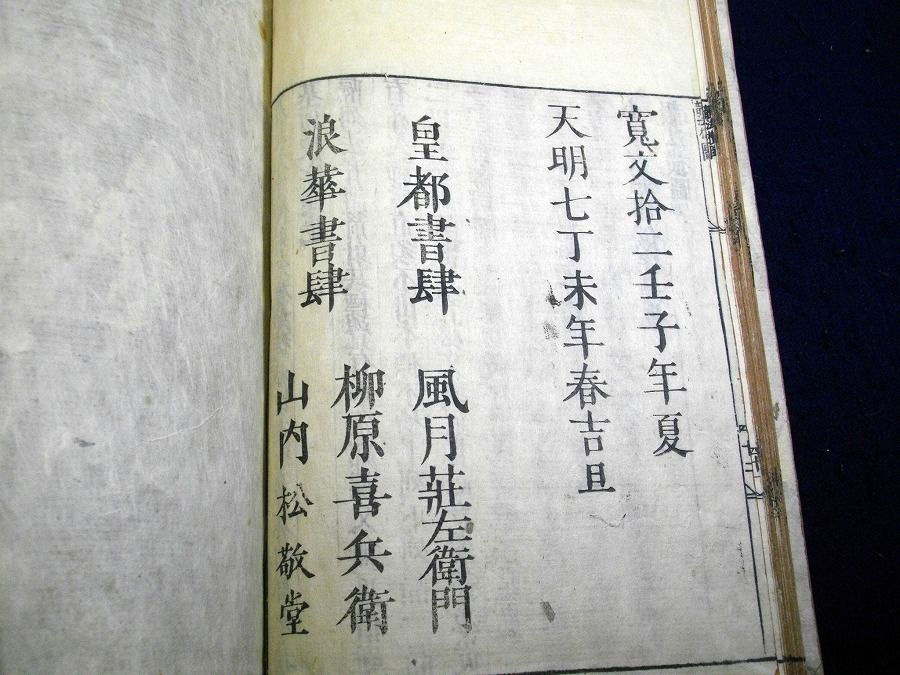 寛文拾二壬子年夏
天明七丁未年春吉旦
皇都書肆 風月莊左衛門
浪華書肆 柳原喜兵衛
山内松敬堂